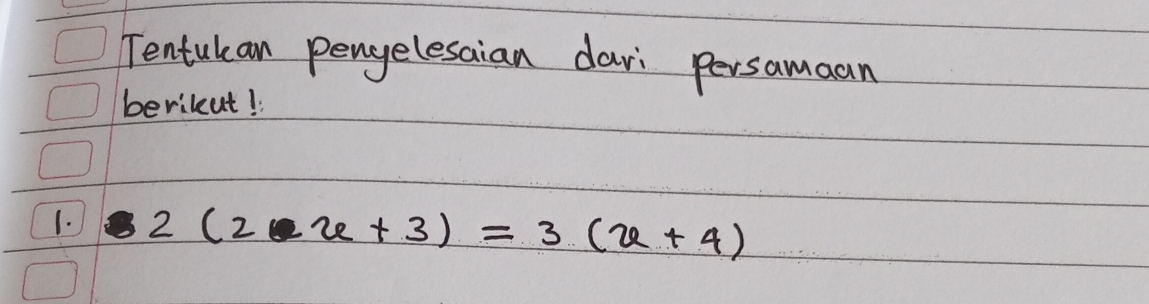 Tentukan penyelesaian dari persamaan
berikut!
1. 2 (2x + 3) = 3 (x + 4)